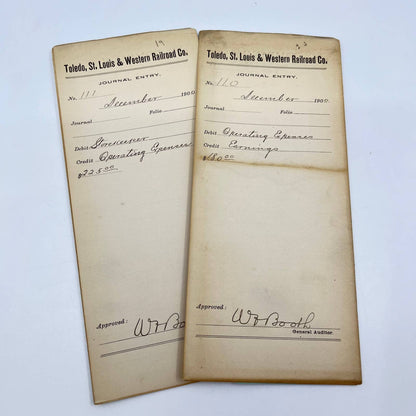 19
Toledo, St. Louis & Western Railroad Co.
JOURNAL ENTRY.
No. 111
December 1900
Journal Folio
Debit Storekeeper
Credit Operating Expenses
$225.00
Approved:
W D Boo
Toledo, St. Louis & Western Railroad Co.
JOURNAL ENTRY.
No. 110
December 1900.
Journal Folio
Debit Operating Expenses
Credit Earnings
$180.00
Approved:
Booth
General Auditor.